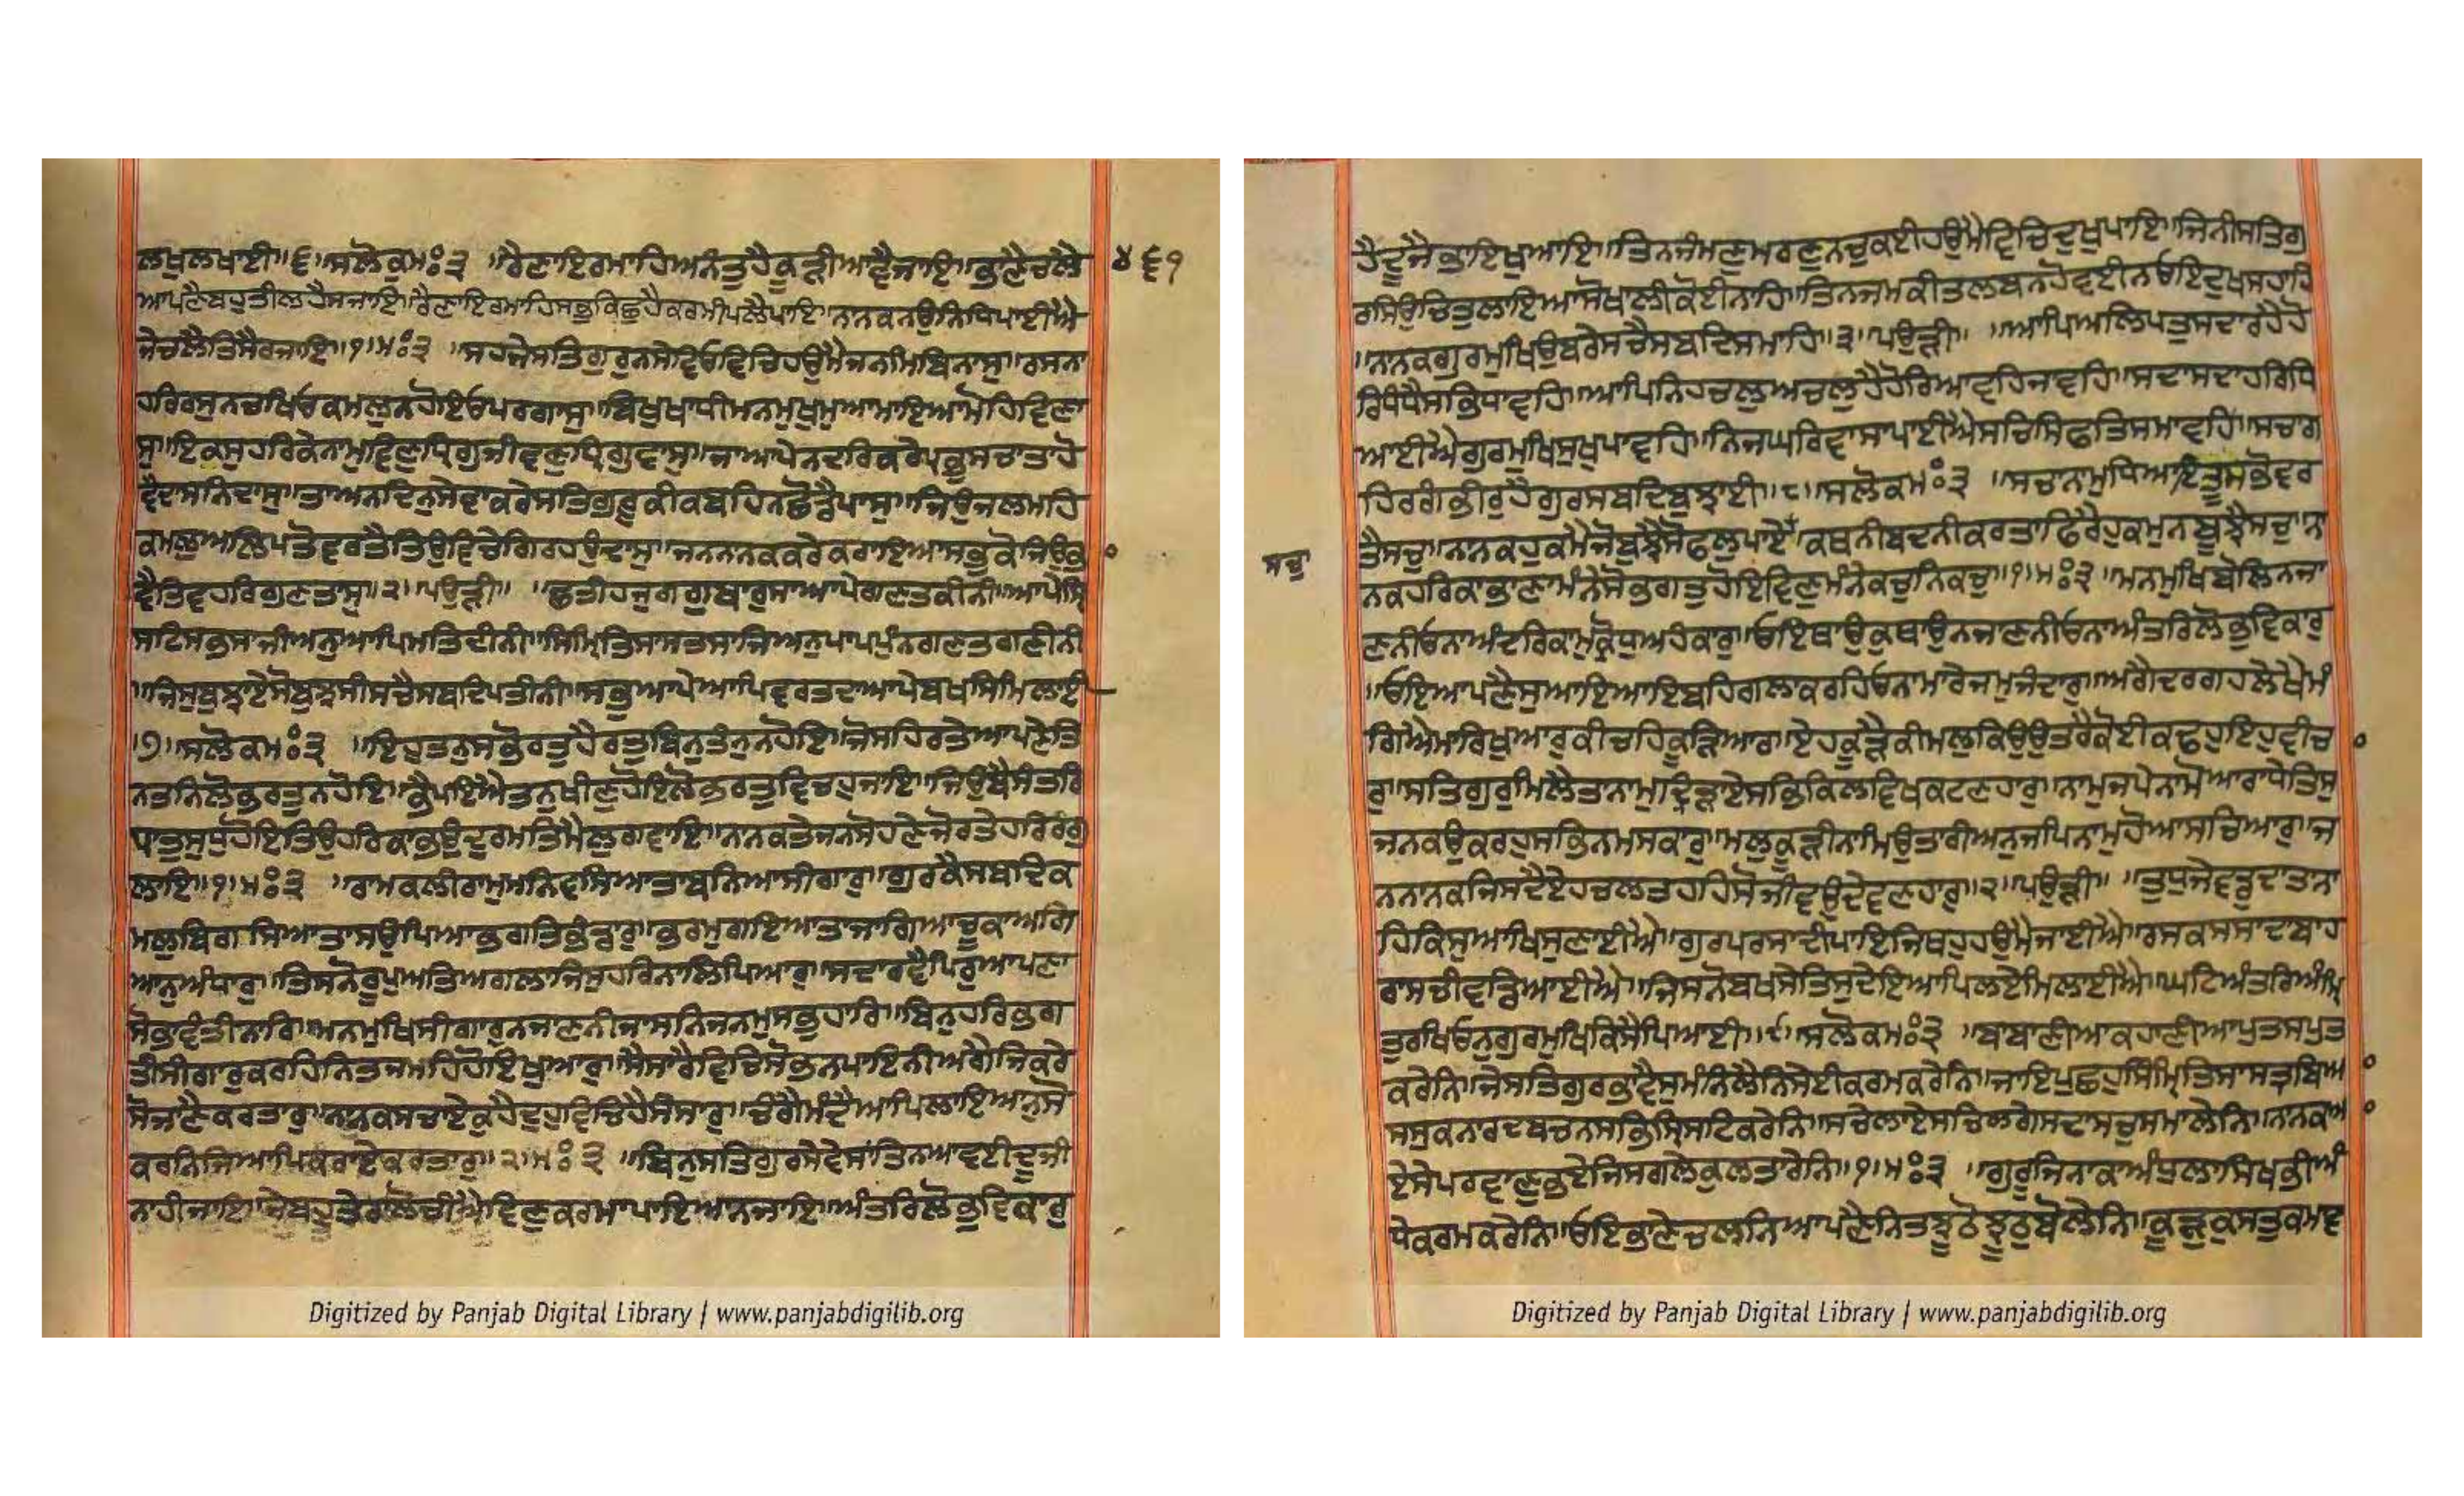 ਲਖੁਲਖਾਈ॥੬॥ਸਲੋਕੁਮਃ੩ ॥ਰੈਣਾਇਰਮਾਹਿਅਨੰਤੁਹੈਕੂੜੀਆਵੈਜਾਇ॥ਭਾਣੈਚਲੈ
੪੬੧
ਆਪਣੈਬਹੁਤੀਲਹੈਸਜਾਇ॥ਰੈਣਾਇਰਮਾਹਿਸਭੁਕਿਛੁਹੈਕਰਮੀਪਲੈਪਾਇ॥ਨਾਨਕਨਉਨਿਧਿਪਾਈਐ
ਜੇਚਲੈਤਿਸੈਰਜਾਇ॥੧॥ਮਃ੩ ॥ਸਹਜੇਸਤਿਗੁਰੁਨਸੇਵਿਓਵਿਚਿਹਉਮੈਜਨਮਿਬਿਨਾਸੁ॥ਰਸਨਾ
ਹਰਿਰਸੁਨਚਖਿਓਕਮਲੁਨਹੋਇਓਪਰਗਾਸੁ॥ਬਿਖੁਖਾਧੀਮਨਮੁਖੁਮੁਆਮਾਇਆਮੋਹਿਵਿਣਾ
ਸੁ॥ਇਕਸੁਹਰਿਕੇਨਾਮਵਿਣੁਧ੍ਰਿਗੁਜੀਵਣੁਧ੍ਰਿਗੁਵਾਸੁ॥ਜਾਆਪੇਨਦਰਿਕਰੇਪ੍ਰਭੁਸਚਾਤਾਹੋ
ਵੈਦਾਸਨਿਦਾਸੁ॥ਤਾਅਨਦਿਨੁਸੇਵਾਕਰੇਸਤਿਗੁਰੂਕੀਕਬਹਿਨਛੋਡੈਪਾਸੁ॥ਜਿਉਜਲਮਹਿ
ਕਮਲੁਅਲਿਪਤੋਵਰਤੈਤਿਉਵਿਚੇਗਿਰਹਉਦਾਸੁ॥ਜਨਨਾਨਕਕਰੇਕਰਾਇਆਸਭੁਕੋਜਿਉਭਾ
ਵੈਤਿਵਹਰਿਗੁਣਤਾਸੁ॥੨॥ਪਉੜੀ॥ ॥ਛਤੀਹਜੁਗਗੁਬਾਰੁਸਾਆਪੇਗਣਤਕੀਨੀ॥ਆਪੇਸ੍ਰਿ
ਸਟਿਸਭਸਾਜੀਅਨੁਆਪਿਮਤਿਦੀਨੀ॥ਸਿਮ੍ਰਿਤਿਸਾਸਤਸਾਜਿਅਨੁਪਾਪਪੁੰਨਗਣਤਗਣੀਨੀ
॥ਜਿਸੁਬੁਝਾਏਸੋਬੁਝਸੀਸਚੈਸਬਦਿਪਤੀਨੀ॥ਸਭੁਆਪੇਆਪਿਵਰਤਦਾਆਪੇਬਖਸਿਮਿਲਾਈ
॥੭॥ਸਲੋਕਮਃ੩ ॥ਇਹੁਤਨੁਸਭੋਰਤੁਹੈਰਤੁਬਿਨੁਤੰਨੁਨਹੋਇ॥ਜੋਸਹਿਰਤੇਆਪਣੇਤਿ
ਨਤਨਿਲੋਭਰਤੁਨਹੋਇ॥ਭੈਪਇਐਤਨੁਖੀਣੁਹੋਇਲੋਭਰਤੁਵਿਚਹੁਜਾਇ॥ਜਿਉਬੈਸੰਤਰਿ
ਧਾਤੁਸੁਧੁਹੋਇਤਿਉਹਰਿਕਾਭਉਦੁਰਮਤਿਮੈਲੁਗਵਾਇ॥ਨਾਨਕਤੇਜਨਸੋਹਣੇਜੋਰਤੇਹਰਿਰੰਗੁ
ਲਾਇ॥੧॥ਮਃ੩ ॥ਰਾਮਕਲੀਰਾਮੁਮਨਿਵਸਿਆਤਾਬਨਿਆਸੀਗਾਰੁ॥ਗੁਰਕੈਸਬਦਿਕ
ਮਲੁਬਿਗਸਿਆਤਾਸਉਪਿਆਭਗਤਿਭੰਡਾਰੁ॥ਭਰਮੁਗਇਆਤਾਜਾਗਿਆਚੂਕਾਅਗਿ
ਆਨੁਅੰਧਾਰੁ॥ਤਿਸਨੋਰੂਪੁਅਤਿਅਗਲਾਜਿਸੁਹਰਿਨਾਲਿਪਿਆਰੁ॥ਸਦਾਰਵੈਪਿਰੁਆਪਣਾ
ਸੋਭਾਵੰਤੀਨਾਰਿ॥ਮਨਮੁਖਿਸੀਗਾਰੁਨਜਾਣਨੀਜਾਸਨਿਜਨਮੁਸਭੁਹਾਰਿ॥ਬਿਨੁਹਰਿਭਗ
ਤੀਸੀਗਾਰੁਕਰਹਿਨਿਤਜਮਹਿਹੋਇਖੁਆਰੁ॥ਸੈਸਾਰੈਵਿਚਿਸੋਭਨਪਾਇਨੀਅਗੈਜਿਕਰੇ
ਸੋਜਾਣੈਕਰਤਾਰੁ॥ਨਾਨਕਸਚਾਏਕੁਹੈਦੁਹੁਵਿਚਿਹੈਸੰਸਾਰੁ॥ਚੰਗੈਮੰਦੈਆਪਿਲਾਇਅਨੁਸੋ
ਕਰਨਿਜਿਆਪਿਕਰਾਏਕਰਤਾਰੁ॥੨॥ਮਃ੩ ॥ਬਿਨੁਸਤਿਗੁਰਸੇਵੇਸਾਂਤਿਨਆਵਈਦੂਜੀ
ਨਾਹੀਜਾਇ॥ਜੇਬਹੁਤੇਰਾਲੋਚੀਐਵਿਣੁਕਰਮਾਪਾਇਆਨਜਾਇ॥ਅੰਤਰਿਲੋਭੁਵਿਕਾਰੁ
ਹੈਦੂਜੈਭਾਇਖੁਆਇ॥ਤਿਨਜੰਮਣੁਮਰਣੁਨਚੁਕਈਹਉਮੈਵਿਚਿਦੁਖੁਪਾਇ॥ਜਿਨੀਸਤਿਗੁ
ਰਸਿਉਚਿਤੁਲਾਇਆਸੋਖਾਲੀਕੋਈਨਾਹਿ॥ਤਿਨਜਮਕੀਤਲਬਨਹੋਵਈਨਓਇਦੁਖਸਹਾਹਿ
॥ਨਾਨਕਗੁਰਮੁਖਿਉਬਰੇਸਚੈਸਬਦਿਸਮਾਹਿ॥੩॥ਪਉੜੀ॥ ॥ਆਪਿਅਲਿਪਤੁਸਦਾਰਹੈਹੋ
ਰਿਧੰਧੈਸਭਿਧਾਵਹਿ॥ਆਪਿਨਿਹਚਲੁਅਚਲੁਹੈਹੋਰਿਆਵਹਿਜਾਵਹਿ॥ਸਦਾਸਦਾਹਰਿਧਿ
ਆਈਐਗੁਰਮੁਖਿਸੁਖੁਪਾਵਹਿ॥ਨਿਜਘਰਿਵਾਸਾਪਾਈਐਸਚਿਸਿਫਤਿਸਮਾਵਹਿ॥ਸਚਾਗ
ਹਿਰਗੰਭੀਰੁਹੈਗੁਰਸਬਦਿਬੁਝਾਈ॥੮॥ਸਲੋਕਮਃ੩ ॥ਸਚਾਨਾਮੁਧਿਆਇਤੂਸਭੋਵਰ
ਸਚੁ
ਤੈਸਚੁ॥ਨਾਨਕਹੁਕਮੈਜੋਬੁਝੈਸੋਫਲੁਪਾਏ॥ਕਥਨੀਬਦਨੀਕਰਤਾਫਿਰੈਹੁਕਮੁਨਬੂਝੈਸਚੁ॥ਨਾ
ਨਕਹਰਿਕਾਭਾਣਾਮੰਨੇਸੋਭਗਤੁਹੋਇਵਿਣੁਮੰਨੇਕਚੁਨਿਕਚੁ॥੧॥ਮਃ੩ ॥ਮਨਮੁਖਿਬੋਲਿਨਜਾ
ਣਨੀਓਨਾਅੰਦਰਿਕਾਮੁਕ੍ਰੋਧੁਅਹੰਕਾਰੁ॥ਓਇਥਾਉਕੁਥਾਉਨਜਾਣਨੀਓਨਾਅੰਤਰਿਲੋਭੁਵਿਕਾਰੁ
॥ਓਇਆਪਣੈਸੁਆਇਆਇਬਹਿਗਲਾਕਰਹਿਓਨਾਮਾਰੇਜਮੁਜੰਦਾਰੁ॥ਅਗੈਦਰਗਹਲੇਖੈਮੰ
ਗਿਐਮਾਰਿਖੁਆਰੁਕੀਚਹਿਕੂੜਿਆਰ॥ਏਹਕੂੜੈਕੀਮਲੁਕਿਉਉਤਰੈਕੋਈਕਢਹੁਇਹੁਵੀਚਾ
ਰੁ॥ਸਤਿਗੁਰੁਮਿਲੈਤਾਨਾਮੁਦ੍ਰਿੜਾਏਸਭਿਕਿਲਵਿਖਕਟਣਹਾਰੁ॥ਨਾਮੁਜਪੇਨਾਮੋਆਰਾਧੇਤਿਸੁ
ਜਨਕਉਕਰਹੁਸਭਿਨਮਸਕਾਰੁ॥ਮਲੁਕੂੜੀਨਾਮਿਉਤਾਰੀਅਨੁਜਪਿਨਾਮੁਹੋਆਸਚਿਆਰੁ॥ਜ
ਨਨਾਨਕਜਿਸਦੇਏਹਚਲਤਹਹਿਸੋਜੀਵਉਦੇਵਣਹਾਰੁ॥੨॥ਪਉੜੀ॥ ॥ਤੁਧੁਜੇਵਡੁਦਾਤਾਨਾ
ਹਿਕਿਸੁਆਖਿਸੁਣਾਈਐ॥ਗੁਰਪਰਸਾਦੀਪਾਇਜਿਥਹੁਹਉਮੈਜਾਈਐ॥ਰਸਕਸਸਾਦਬਾਹ
ਰਾਸਚੀਵਡਿਆਈਐ॥ਜਿਸਨੋਬਖਸੇਤਿਸੁਦੇਇਆਪਿਲਏਮਿਲਾਈਐ॥ਘਟਿਅੰਤਰਿਅੰਮ੍ਰਿ
ਤੁਰਖਿਓਨੁਗੁਰਮੁਖਿਕਿਸੈਪਿਆਈ॥੯॥ਸਲੋਕਮਃ੩ ॥ਬਾਬਾਣੀਆਕਹਾਣੀਆਪੁਤਸਪੁਤ
ਕਰੇਨਿ॥ਜੇਸਤਿਗੁਰਭਾਵੈਸੁਮੰਨਿਲੈਨਿਸੇਈਕਰਮਕਰੇਨਿ॥ਜਾਇਪੁਛਹੁਸਿੰਮ੍ਰਿਤਿਸਾਸਤਬਿਆ
ਸਸੁਕਨਾਰਦਬਚਨਸਭਿਸ੍ਰਿਸਟਿਕਰੇਨਿ॥ਸਚੇਲਾਏਸਚਿਲਗੇਸਦਾਸਚੁਸਮਾਲੇਨਿ॥ਨਾਨਕਆ
ਏਸੇਪਰਵਾਣੁਭਏਜਿਸਗਲੇਕੁਲਤਾਰੇਨਿ॥੧॥ਮਃ੩ ॥ਗੁਰੂਜਿਨਾਕਾਅੰਧੁਲਾਸਿਖਭੀਅੰ
ਧੇਕਰਮਕਰੇਨਿ॥ਓਇਭਾਣੈਚਲਨਿਆਪਣੈਨਿਤਝੂਠੋਝੂਠੁਬੋਲੇਨਿ॥ਕੂੜੁਕੁਸਤੁਕਮਾਵ
Digitized by Panjab Digital Library | www.panjabdigilib.org
Digitized by Panjab Digital Library | www.panjabdigilib.org